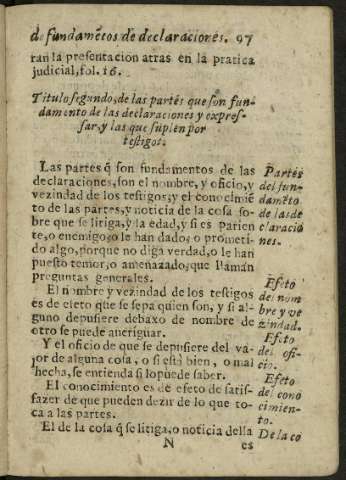 de fundamẽtos de declaraciones. 97
ran la presentacion atras en la pratica
judicial, fol. 16.
Titulo segundo, de las partes que son fun-
damento de las declaraciones y expres-
sar, y las que suplen por
testigos.
Las partes q̃ son fundamentos de las
declaraciones, son el nombre, y oficio, y
vezindad de los testigos, y el conocimiẽ
to de las partes, y noticia de la cosa so-
bre que se litiga, y la edad, y si es parien
te, o enemigo, o le han dado, o prometi-
do algo, porque no diga verdad, o le han
puesto temor, o amenazado, que llaman
preguntas generales.
Partes
del fun-
damẽto
de las de
claracio
nes.
El nombre y vezindad de los testigos
es de efeto que se sepa quien son, y si al-
guno depusiere debaxo de nombre de
otro se puede aueriguar.
Efeto
del nom
bre y ve
zindad.
Y el oficio de que se depusiere del va-
lor de alguna cosa, o si està bien, o mal
hecha, se entienda si lo puede saber.
Efeto
del ofi-
cio.
El conocimiento es de efeto de satis-
fazer de que pueden dezir de lo que to-
ca a las partes.
Efeto
del cono
cimien-
to.
El de la cosa q̃ se litiga, o noticia della
De la co
N es